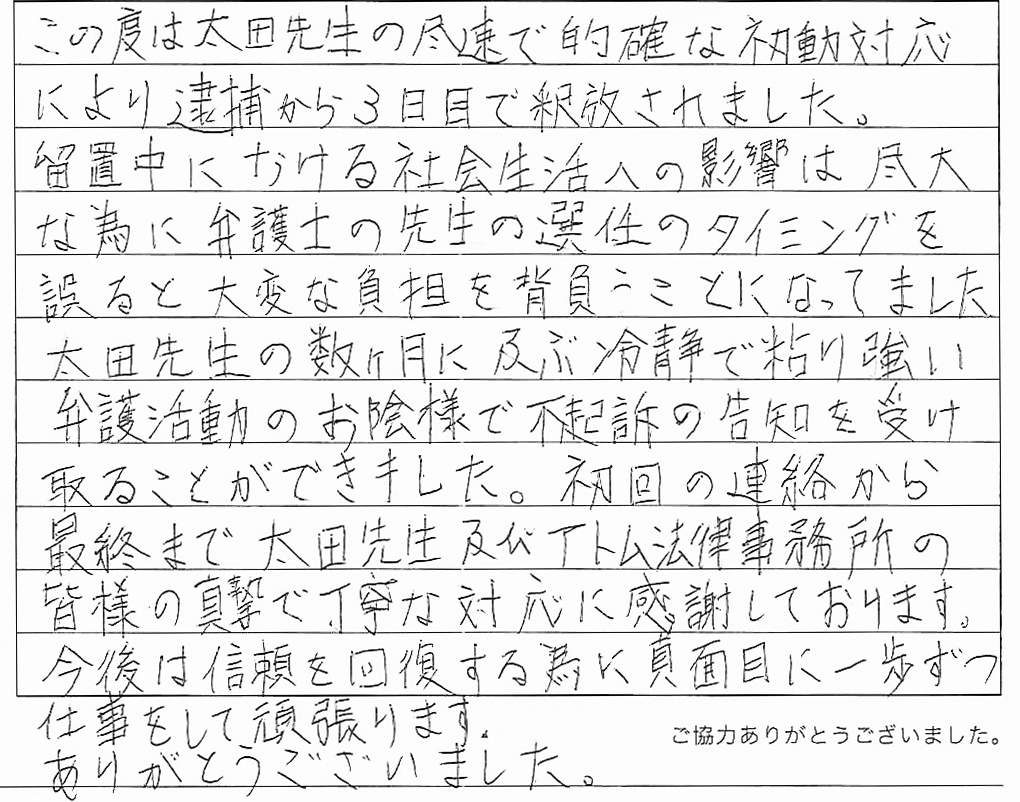 この度は太田先生の尽速で的確な初動対応
により逮捕から3日目で釈放されました。
留置中における社会生活への影響は尽大
な為に弁護士の先生の選任のタイミングを
誤ると大変な負担を背負うことになってました
太田先生の数ヶ月に及ぶ冷静で粘り強い
弁護活動のお陰様で不起訴の告知を受け
取ることができました。初回の連絡から
最終まで太田先生及びアトム法律事務所の
皆様の真撃で丁寧な対応に感謝しております。
今後は信頼を回復する為に真面目に一歩ずつ
仕事をして頑張ります。
ご協力ありがとうございました。
ありがとうございました。